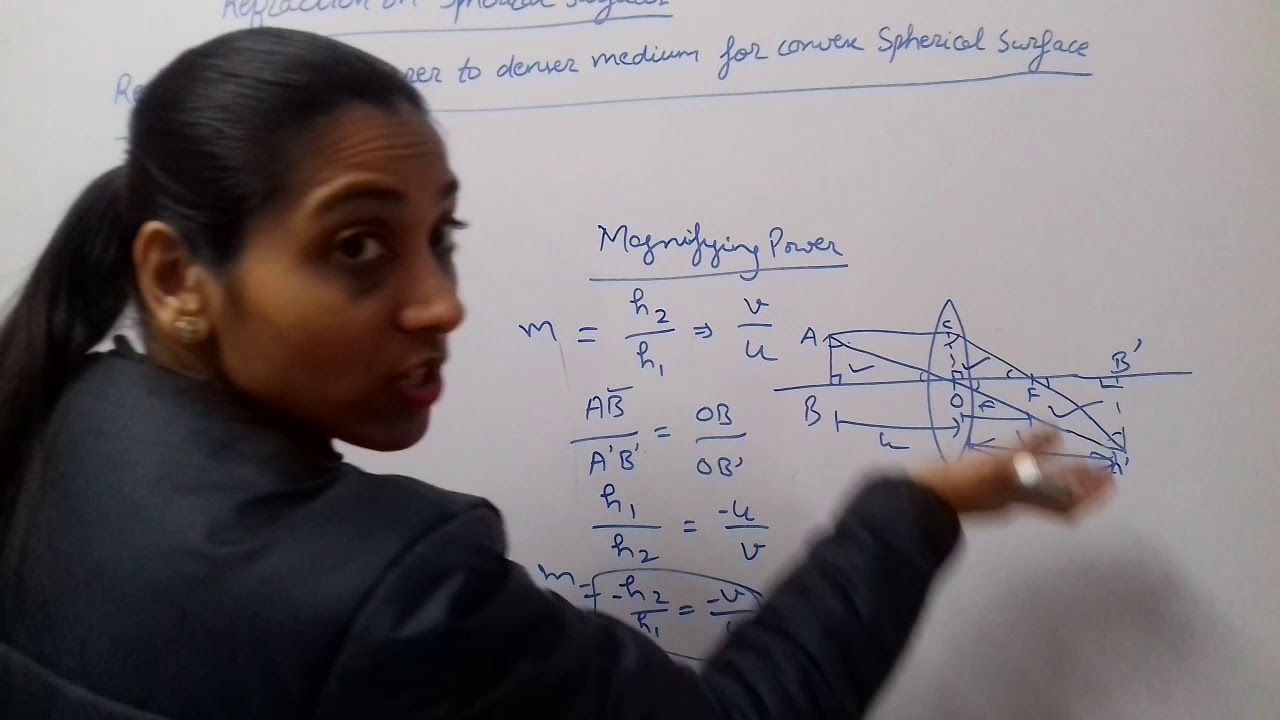 Refraction on Spherical Surfaces
rarer to denser medium for convex Spherical Surface
Magnifying Power
m = h₂/h₁ ⇒ v/u
AB/A'B' = OB/OB'
h₁/h₂ = -u/v
m = -h₂/h₁ = -v
A
C
B'
B
O
F
F
u
A'